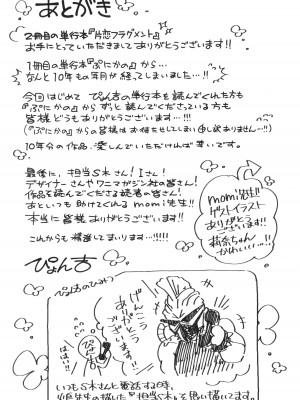 あとがき
2冊目の単行本『片恋フラグメント』
お手にとっていただきましてありがとうございます!!
1冊目の単行本『ぷにかの』から…
なんと10年もの年月が経ってしまいました…!!
今回はじめてぴょん吉の単行本を読んでくれた方も
『ぷにかの』からずっと読んでくださっている方も
皆様どうもありがとうございます…!!!
(『ぷにかの』からの皆様はお待たせしてしまい申し訳ありません…!!)
10年分の作品、楽しんでいただければ幸いです。
最後に、担当S木さん!Iさん!
デザイナーさんやワニマガジン社の皆さん!
作品を読んでくださる読者の皆さん!
あといっも助けてくれるmomi先生!!
本当に皆様ありがとうございます!!
これからも精進してまいります…!!!!
momi先生!!
ゲストイラスト
ありがとう
ございます!!
莉奈ちゃん
かわいい……!!!
ぴょん吉
ぴょん吉のひみつ
げんこう
ありがとう
ございます!
ぴょん
ははい!!
いつもS木さんと電話する時、
先生の描いた『担当S木』を思い描いてます。